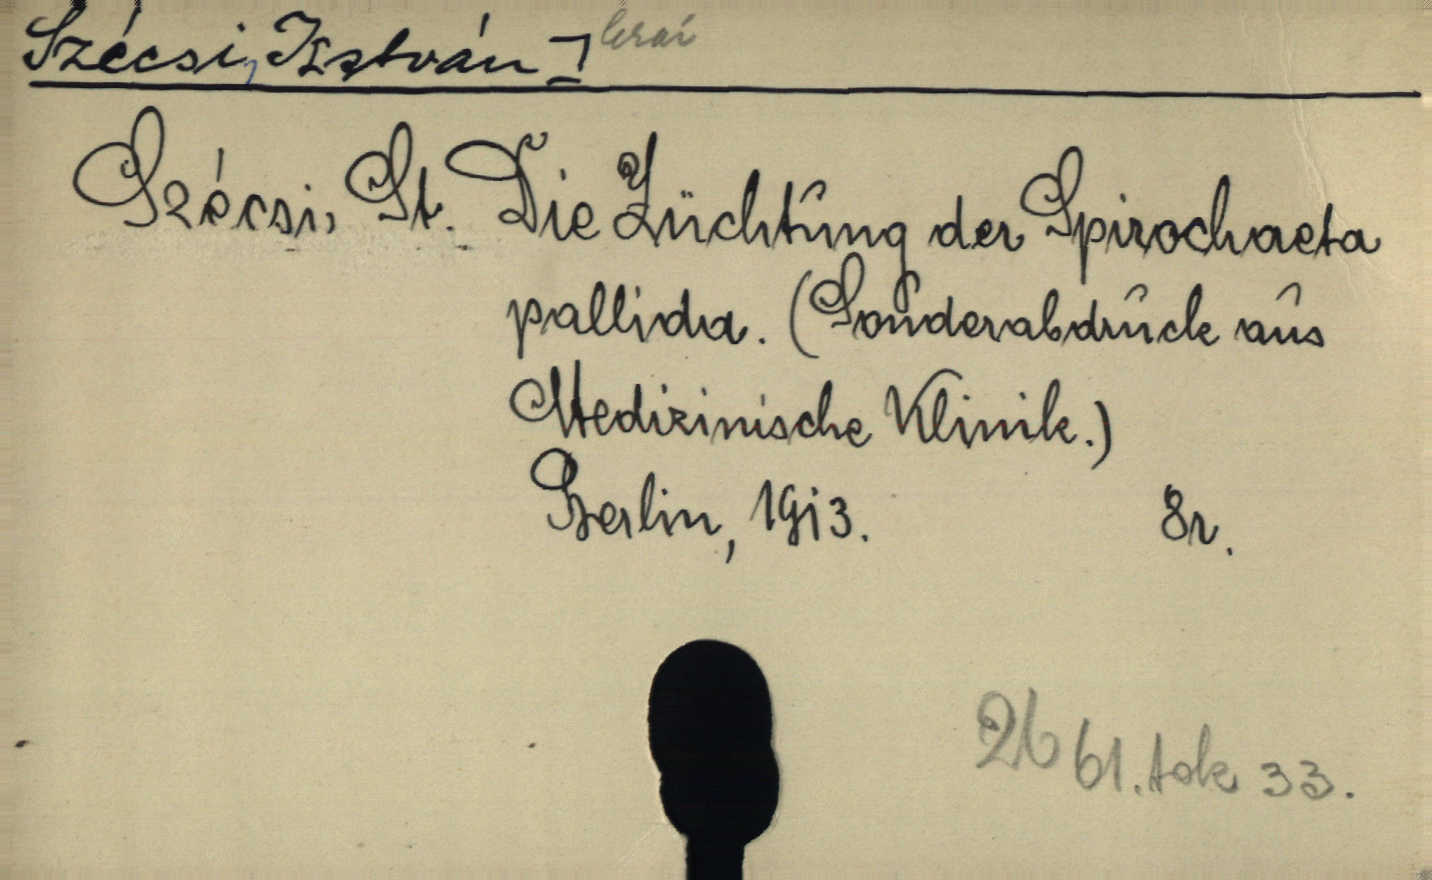 Szécsi, István
Szécsi, St. Die Züchtung der Spirochaeta
pallida. (Sonderabdruck aus
Medizinische Klinik.)
Berlin, 1913. 8r.
61. tok 33.